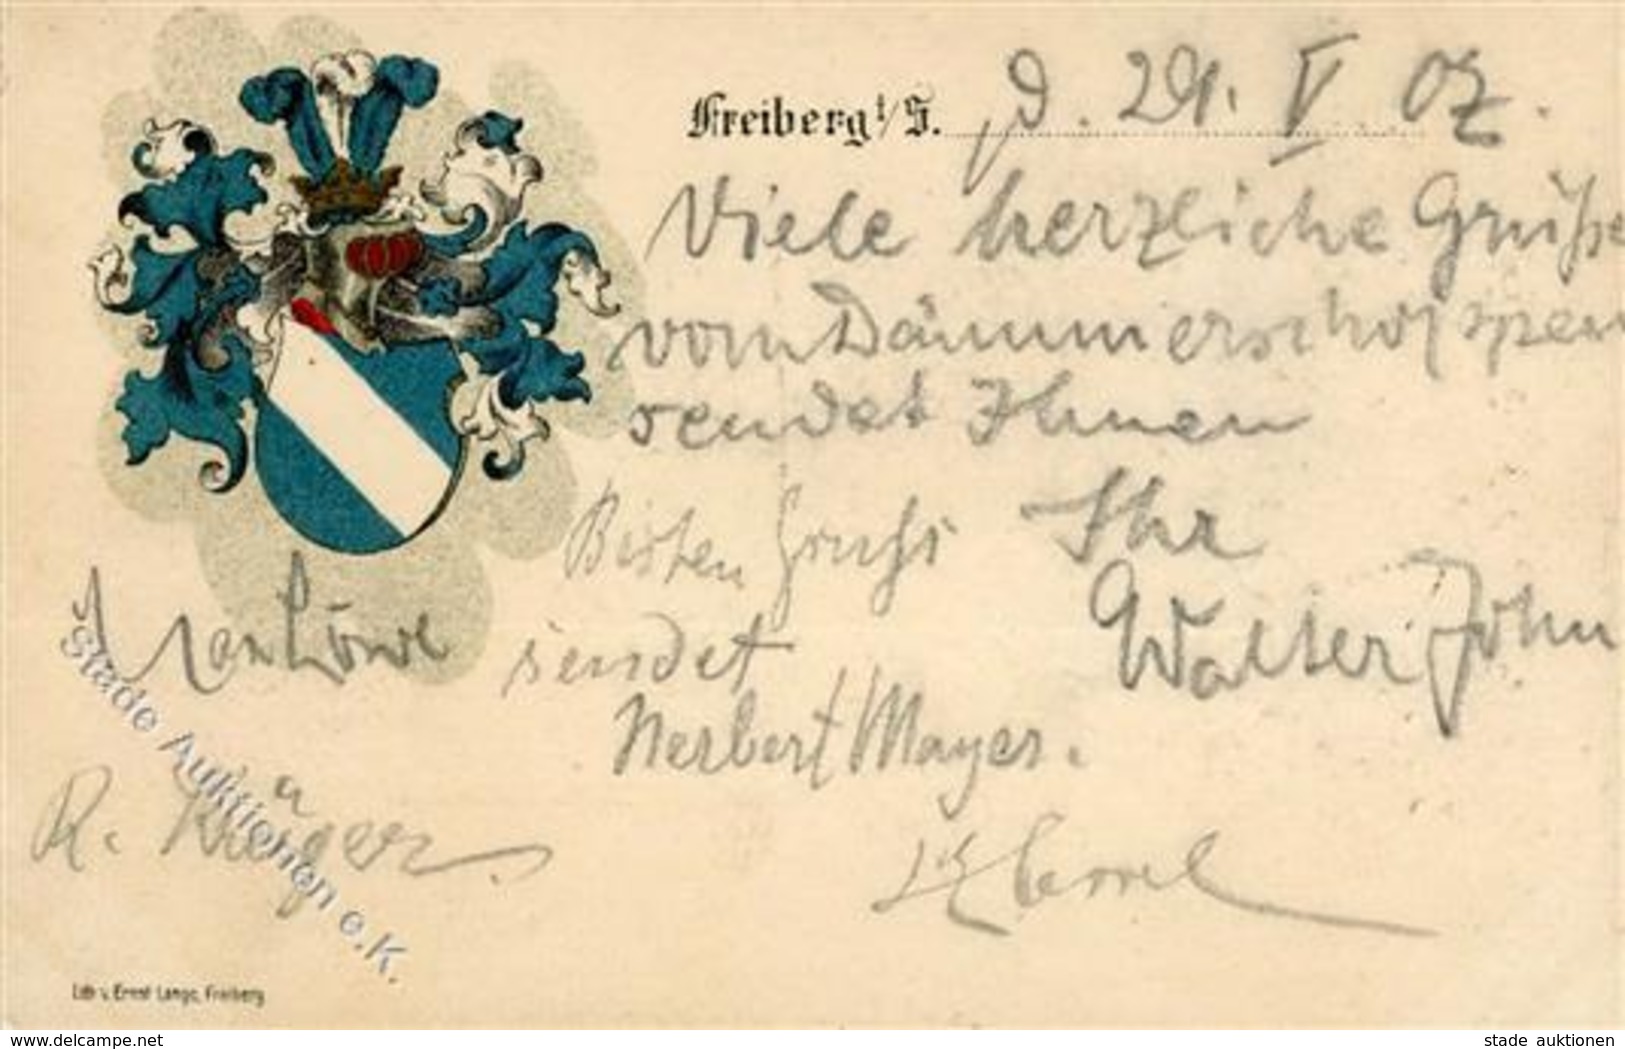 Freiberg i/S. d. 29. V. 07.
Viele herzliche Grüße
vom Dämmerschoppen
sendet Ihnen
Ihr
Walter John
Besten Gruß
sendet
Herbert Mayer.
Löwe
R. Krüger.
Lith v. Ernst Lange, Freiberg
stade Auktionen e.K.
www.delcampe.net
stade auktionen